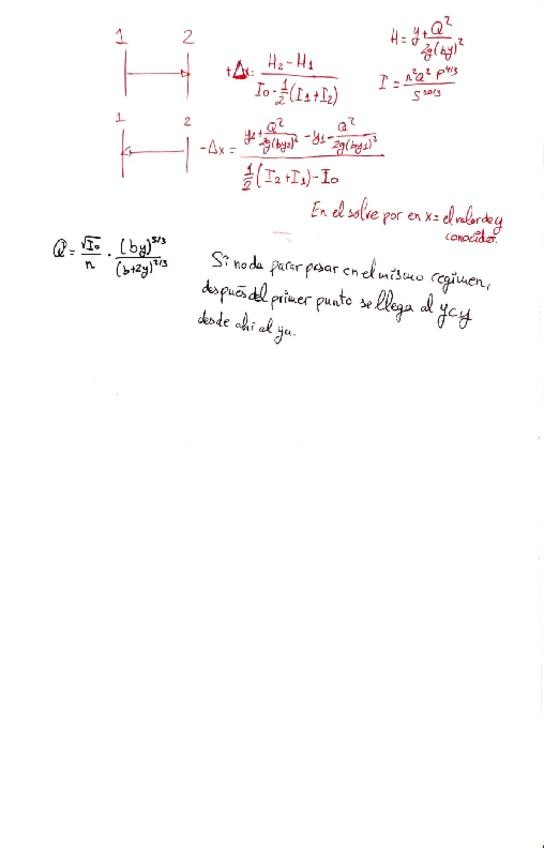 1 2
+Δx = H2 - H1 / I0 - 1/2 (I1 + I2)
H = y + Q² / 2g(by)²
I = n² Q² P^4/3 / S^10/3
1 2
-Δx = y2 + Q² / 2g(by2)² - y1 - Q² / 2g(by1)² / 1/2 (I2 + I1) - I0
En el solve por en x = el valor de y
conocido.
Q = √I0 / n · (by)^5/3 / (b+2y)^2/3
Si no da parar pasar en el mismo regimen,
después del primer punto se llega al yc y
desde ahi al yu.